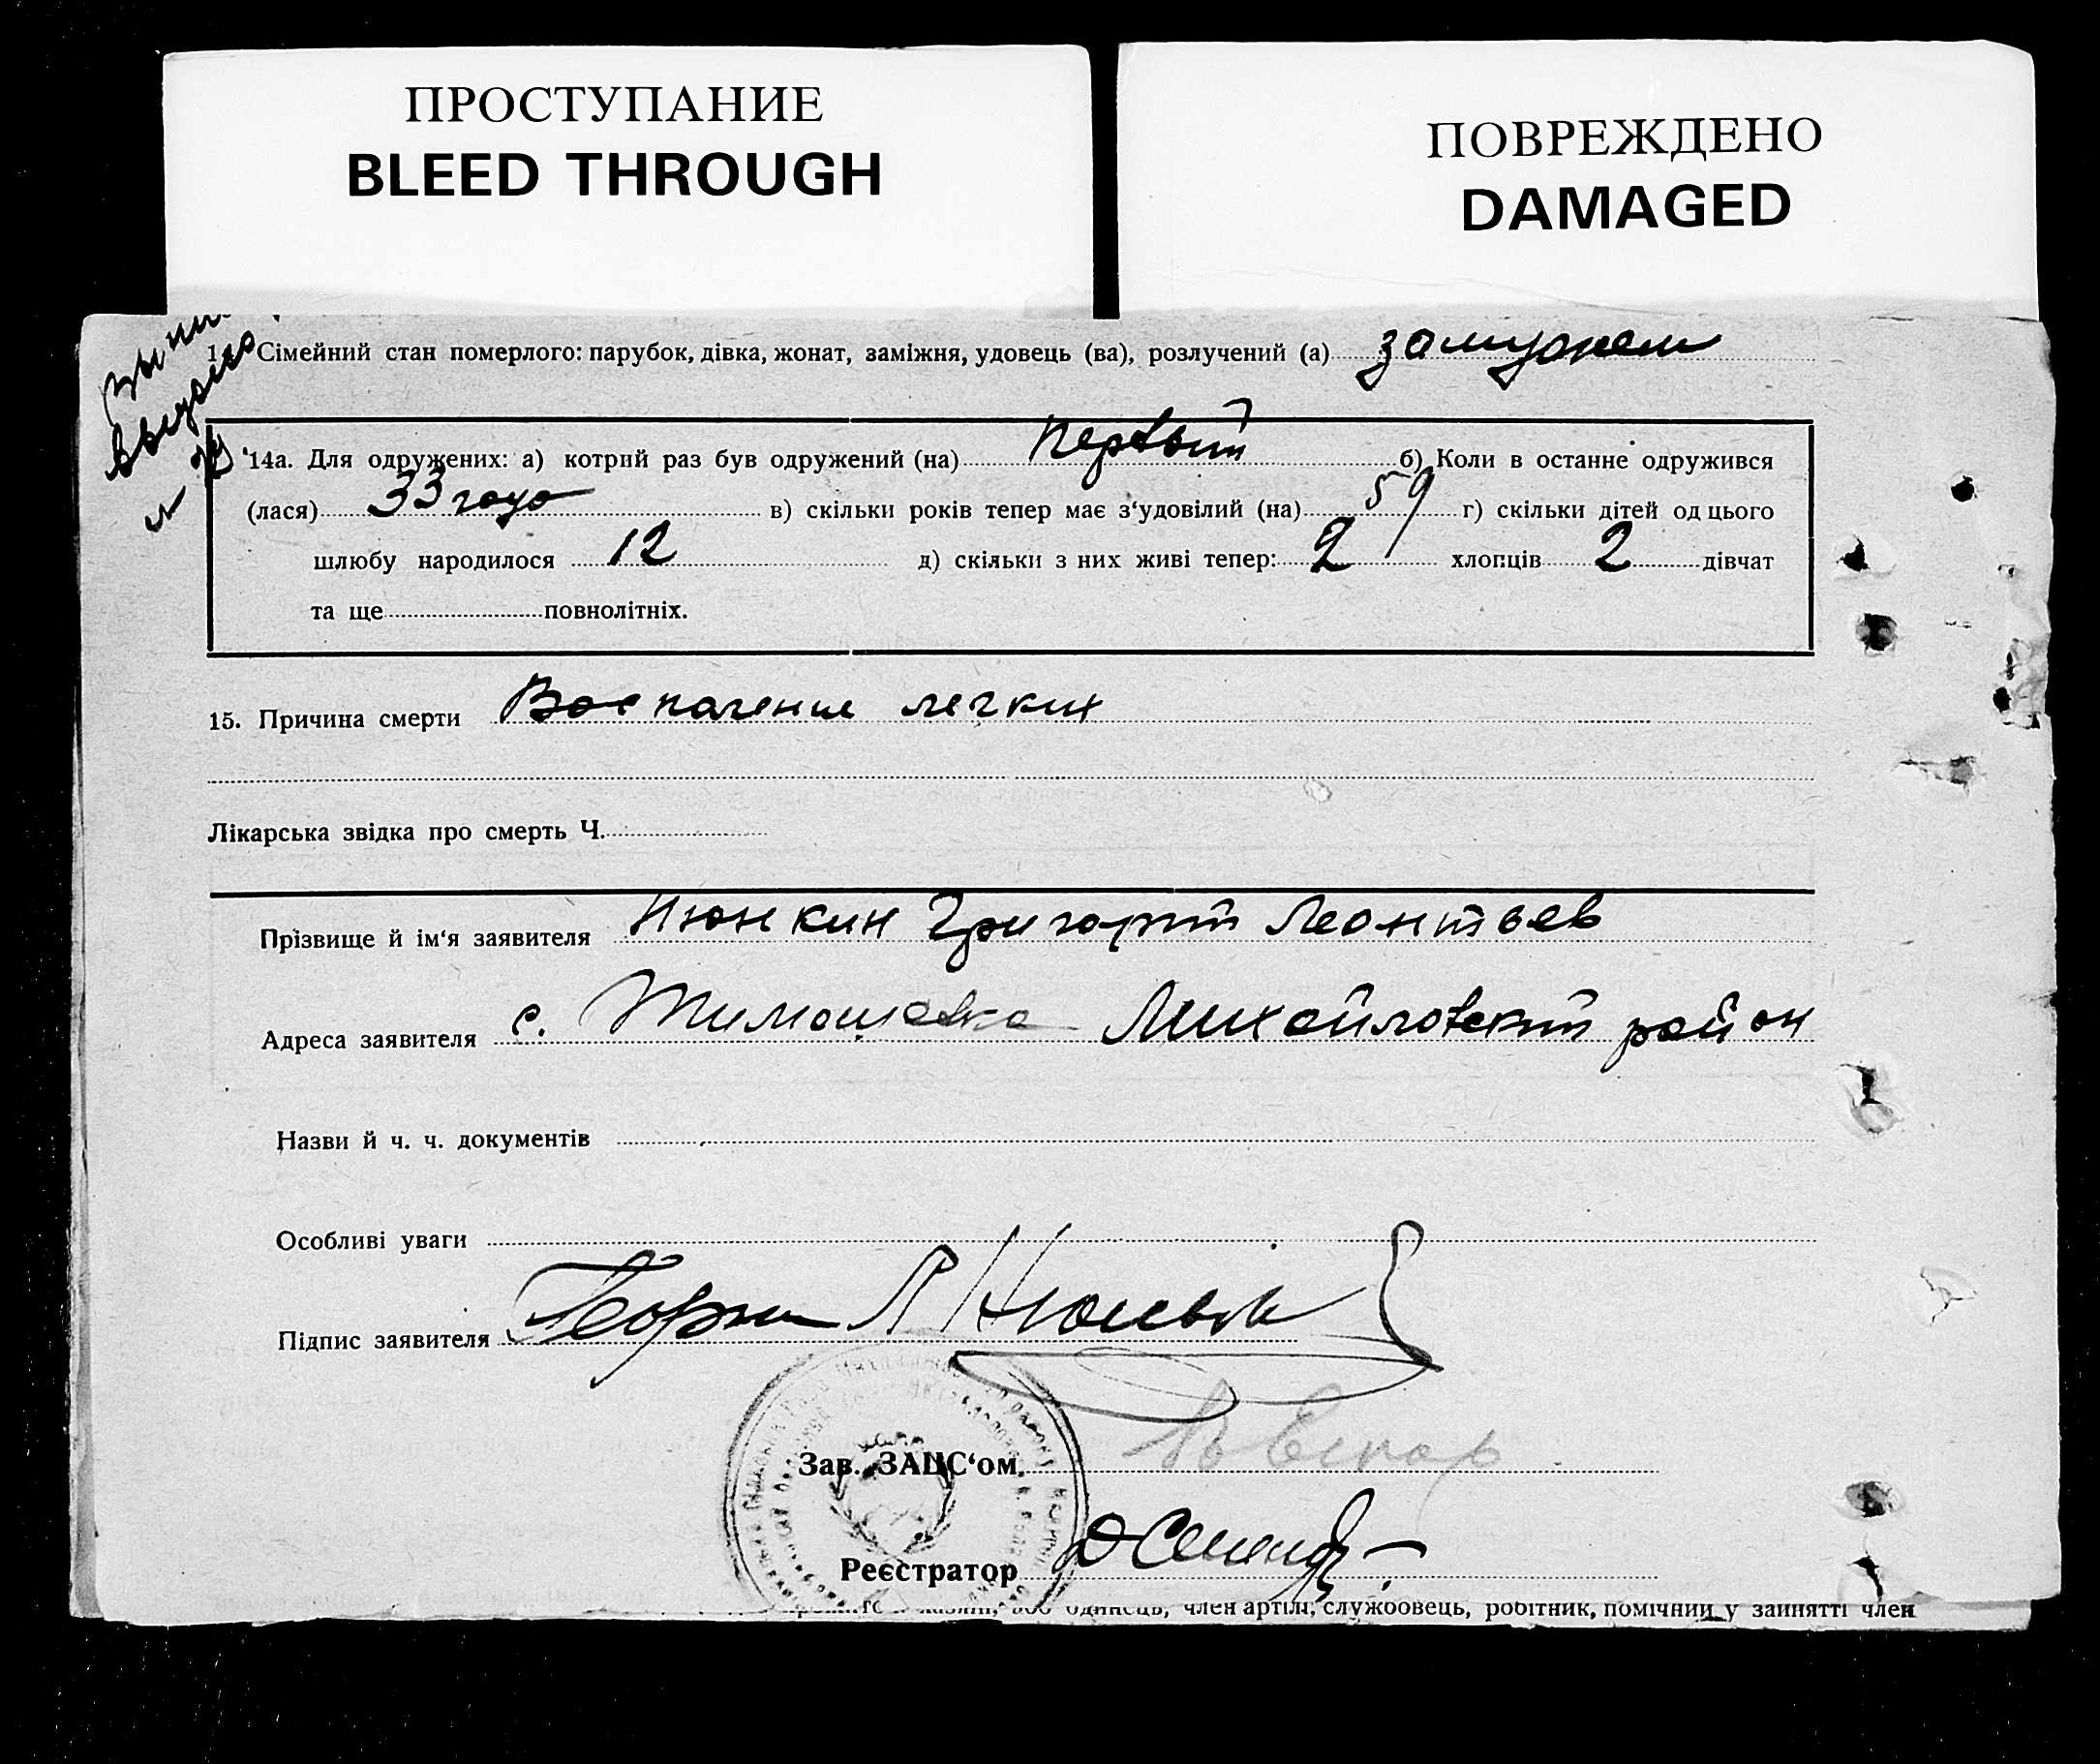 ПРОСТУПАНИЕ
BLEED THROUGH
ПОВРЕЖДЕНО
DAMAGED
Сімейний стан померлого: парубок, дівка, жонат, заміжня, удовець (ва), розлучений (а) замужем
14а. Для одружених: а) котрий раз був одружений (на) первый б) Коли в останнє одружився
(лася) 33 года в) скільки років тепер має з‘удовілий (на) 59 г) скільки дітей од цього
шлюбу народилося 12 д) скільки з них живі тепер: 2 хлопців 2 дівчат
та ще повнолітніх.
15. Причина смерти Воспаление легких
Лікарська звідка про смерть Ч.
Прізвище й ім‘я заявителя Нюнкин Григорий Леонтьев
Адреса заявителя с. Тимошевка Михайловский район
Назви й ч. ч. документів
Особливі уваги
Підпис заявителя
Зав. ЗАЦС‘ом
Реєстратор
одинець, член артілі, службовець, робітник, помічний у занятті член